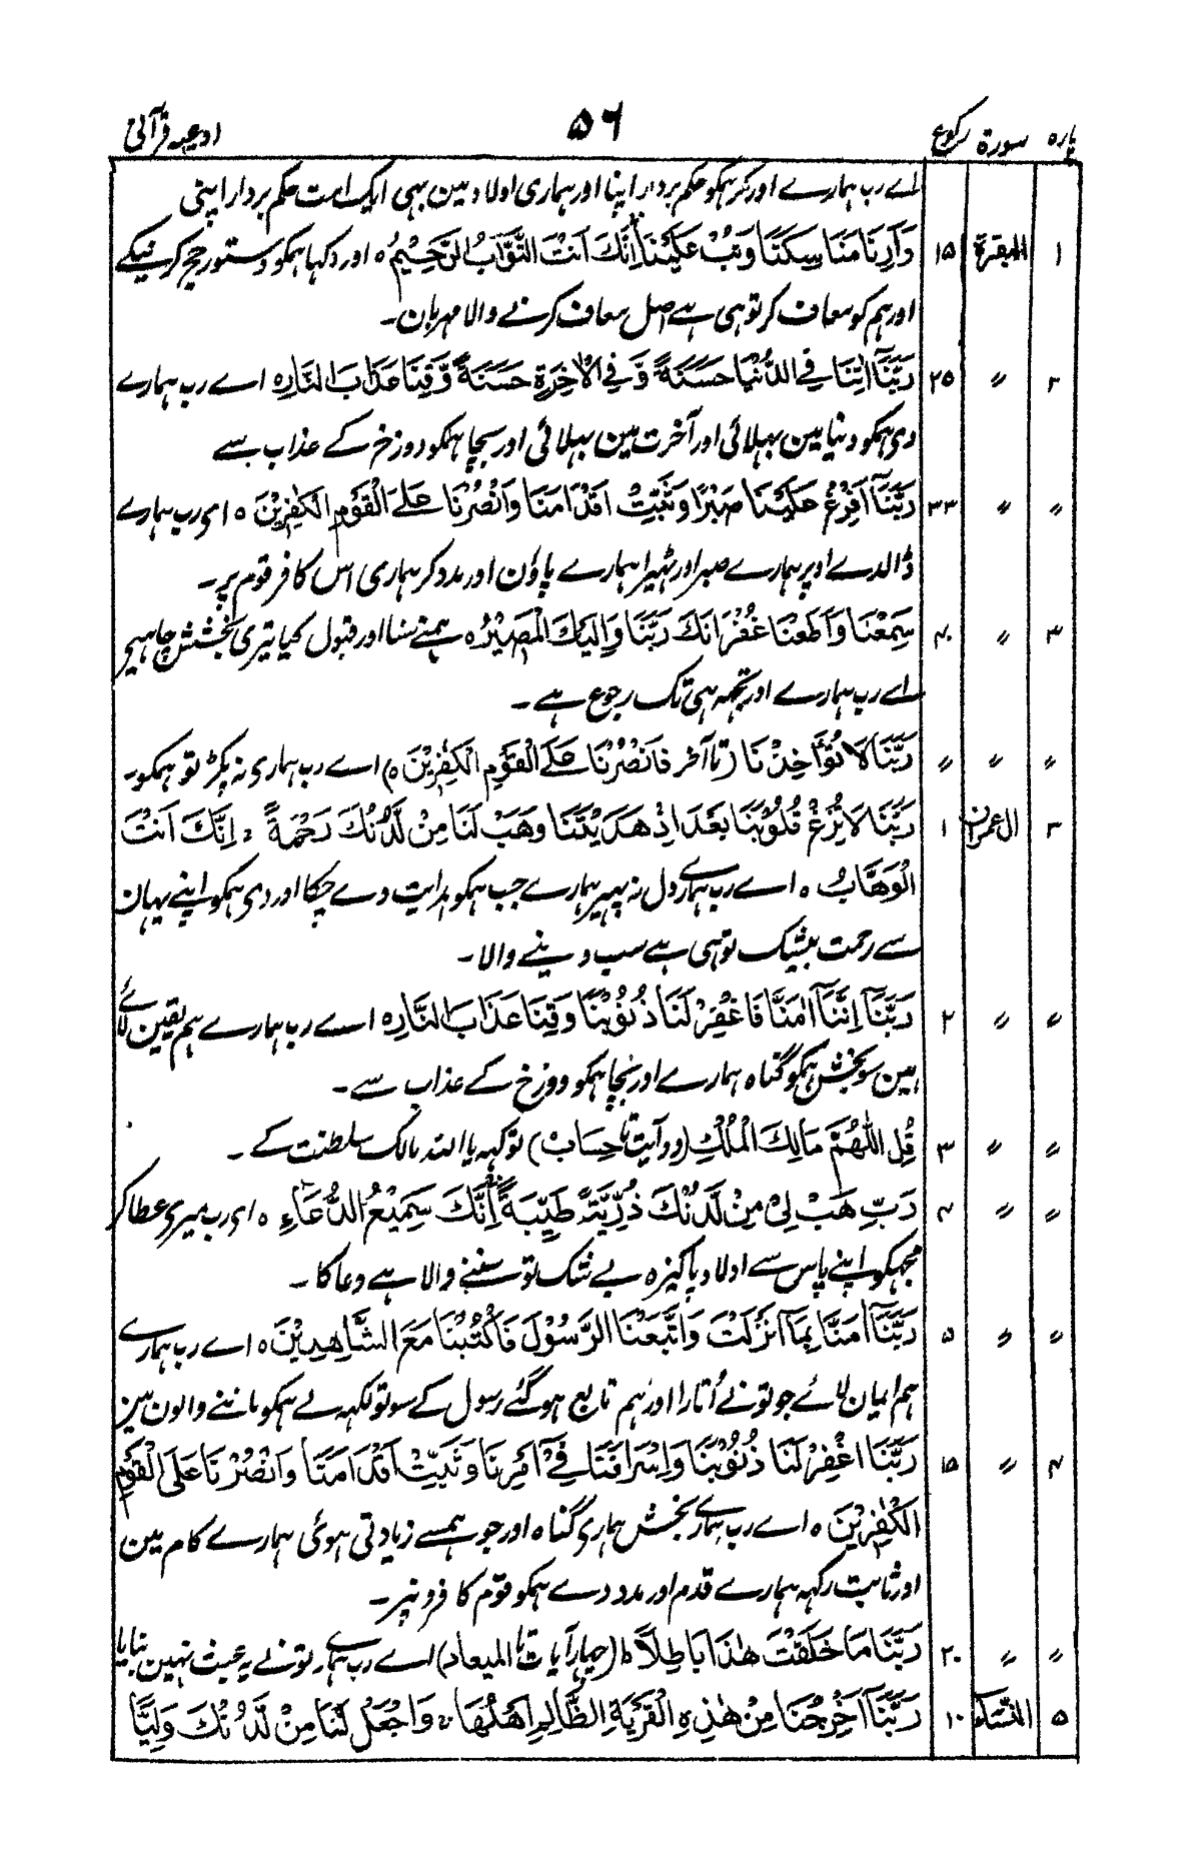 پارہ سورۃ رکوع ۵۶ ادعیہ قرآنی
اے رب ہمارے اور کر ہمکو حکم بردار اپنا اور ہماری اولاد مین بہی ایک امت حکم بردار اپنی
۱ البقرۃ ۱۵ وَاَرِنَا مَنَاسِكَنَا وَتُبْ عَلَيْنَا اِنَّكَ اَنْتَ التَّوَّابُ الرَّحِيْمُ ہ اور دکہا ہمکو دستور حج کرنیکے
اور ہم کو معاف کر توہی ہے اصل معاف کرنے والا مہربان۔
۲ 〃 ۲۵ رَبَّنَآ اٰتِنَا فِي الدُّنْيَا حَسَنَةً وَّ فِي الْاٰخِرَةِ حَسَنَةً وَّقِنَا عَذَابَ النَّارِ ہ اے رب ہمارے
دی ہمکو دنیا مین بہلائی اور آخرت مین بہلائی اور بچا ہمکو دوزخ کے عذاب سے
〃 〃 ۳۳ رَبَّنَآ اَفْرِغْ عَلَيْنَا صَبْرًا وَّثَبِّتْ اَقْدَامَنَا وَانْصُرْنَا عَلَى الْقَوْمِ الْكٰفِرِيْنَ ہ ای رب ہمارے
ڈالدے اوپر ہمارے صبر اور ٹہیرا ہمارے پاؤن اور مدد کر ہماری اس کافر قوم پر۔
۳ 〃 ۴۰ سَمِعْنَا وَاَطَعْنَا غُفْرَانَكَ رَبَّنَا وَاِلَيْكَ الْمَصِيْرُ ہ ہمنے سنا اور قبول کیا تیری بخشش چاہیے
اے رب ہمارے اور تجہہ ہی تک رجوع ہے۔
〃 〃 〃 رَبَّنَا لَا تُؤَاخِذْنَا (تا آخر فَانْصُرْنَا عَلَى الْقَوْمِ الْكٰفِرِيْنَ ہ) اے رب ہماری نہ پکڑ تو ہمکو۔
۳ ال عمران ۱ رَبَّنَا لَا تُزِغْ قُلُوْبَنَا بَعْدَ اِذْ هَدَيْتَنَا وَهَبْ لَنَا مِنْ لَّدُنْكَ رَحْمَةً ۚ اِنَّكَ اَنْتَ
الْوَهَّابُ ہ اے رب ہمارے دل نہ پہیر ہمارے جب ہمکو ہدایت دے چکا اور دی ہمکو اپنے یہان
سے رحمت بیشک توہی ہے سب دینے والا۔
〃 〃 ۲ رَبَّنَآ اِنَّنَآ اٰمَنَّا فَاغْفِرْ لَنَا ذُنُوْبَنَا وَقِنَا عَذَابَ النَّارِ ہ اے رب ہمارے ہم یقین لائے
ہین سو بخش ہمکو گناہ ہمارے اور بچا ہمکو دوزخ کے عذاب سے۔
〃 〃 ۳ قُلِ اللّٰهُمَّ مَالِكَ الْمُلْكِ (دو آیت تا حِسَاب) تو کہہ یا اللہ مالک سلطنت کے۔
〃 〃 ۴ رَبِّ هَبْ لِيْ مِنْ لَّدُنْكَ ذُرِّيَّةً طَيِّبَةً اِنَّكَ سَمِيْعُ الدُّعَاءِ ہ ای رب میری عطا کر
مجہکو اپنے پاس سے اولاد پاکیزہ بے شک تو سننے والا ہے دعا کا۔
〃 〃 ۵ رَبَّنَآ اٰمَنَّا بِمَآ اَنْزَلْتَ وَاتَّبَعْنَا الرَّسُوْلَ فَاكْتُبْنَا مَعَ الشَّاهِدِيْنَ ہ اے رب ہمارے
ہم ایمان لائے جو تونے اُتارا اور ہم تابع ہو گئے رسول کے سو تو لکہہ لے ہمکو ماننے والون مین
۴ 〃 ۱۵ رَبَّنَا اغْفِرْ لَنَا ذُنُوْبَنَا وَاِسْرَافَنَا فِيْٓ اَمْرِنَا وَثَبِّتْ اَقْدَامَنَا وَانْصُرْنَا عَلَى الْقَوْمِ
الْكٰفِرِيْنَ ہ اے رب ہمارے بخش ہماری گناہ اور جو ہمسے زیادتی ہوئی ہمارے کام مین
اور ثابت رکہہ ہمارے قدم اور مدد دے ہمکو قوم کافرونپر۔
〃 〃 ۲۰ رَبَّنَا مَا خَلَقْتَ هٰذَا بَاطِلًا ہ (چہار آیات تا الميعاد) اے رب ہمارے تونے یہ عبث نہین بنایا
۵ النساء ۱۰ رَبَّنَآ اَخْرِجْنَا مِنْ هٰذِهِ الْقَرْيَةِ الظَّالِمِ اَهْلُهَا ۚ وَاجْعَلْ لَنَا مِنْ لَّدُنْكَ وَلِيًّا